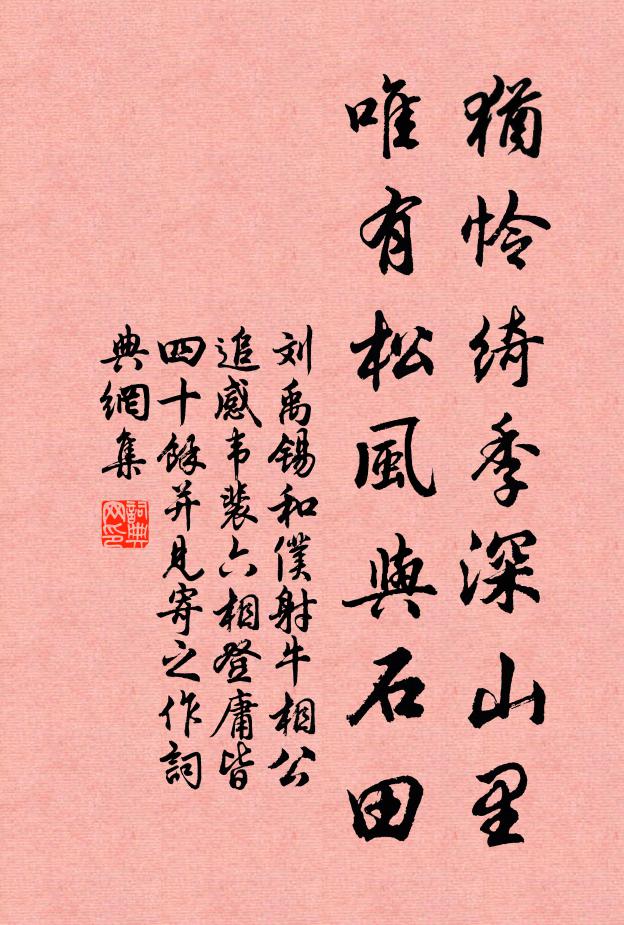 猶怜绮季深山里
唯有松風與石田
刘禹锡和僕射牛相公
追感韦裴六相登庸皆
四十餘并見寄之作詞
典網集
詞典网印